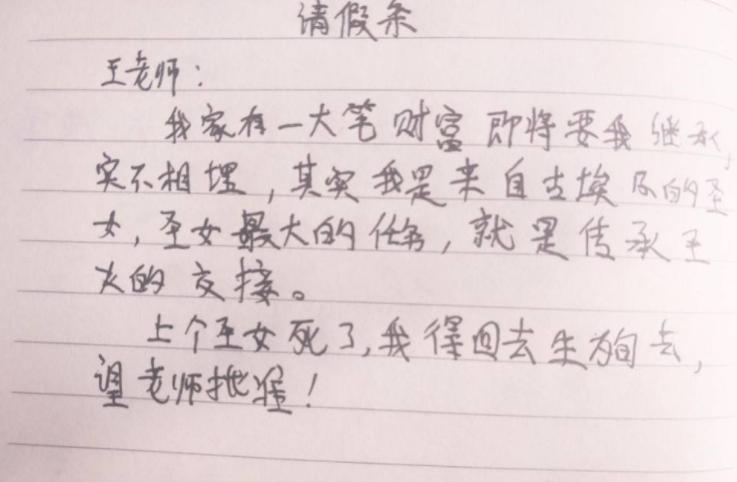 请假条
王老师：
我家有一大笔财富即将要我继承，
实不相埋，其实我是来自古埃及的圣
女，圣女最大的任务，就是传承圣
火的交接。
上个圣女死了，我得回去生殉去，
望老师批准！